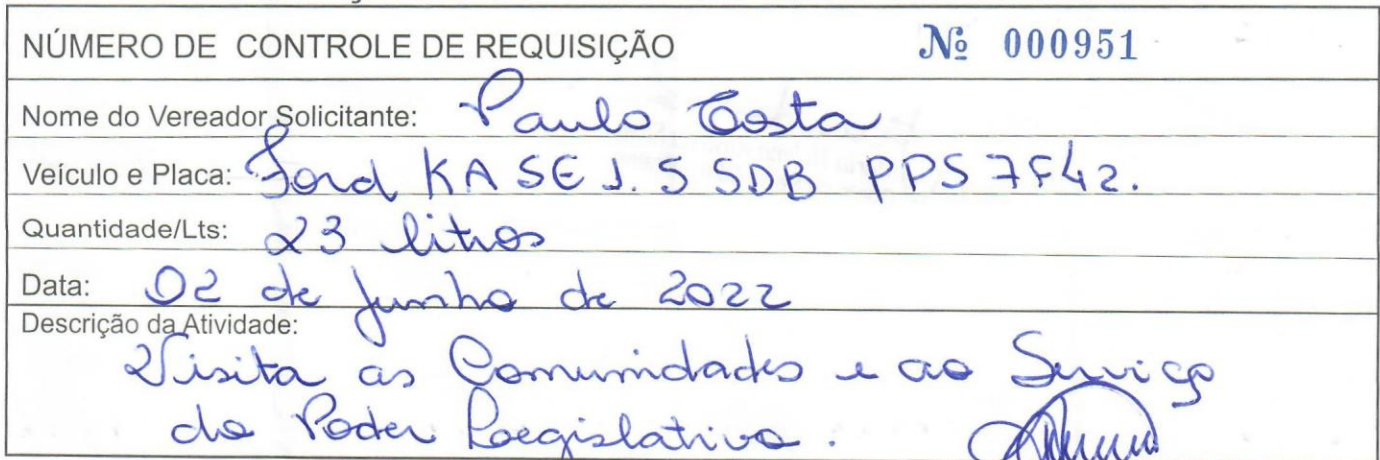 NÚMERO DE CONTROLE DE REQUISIÇÃO Nº 000951
Nome do Vereador Solicitante: Paulo Costa
Veículo e Placa: Ford KA SE 1.5 SDB PPS 7F42.
Quantidade/Lts: 23 litros
Data: 02 de Junho de 2022
Descrição da Atividade:
Visita as Comunidades e ao Serviço
do Poder Legislativo.